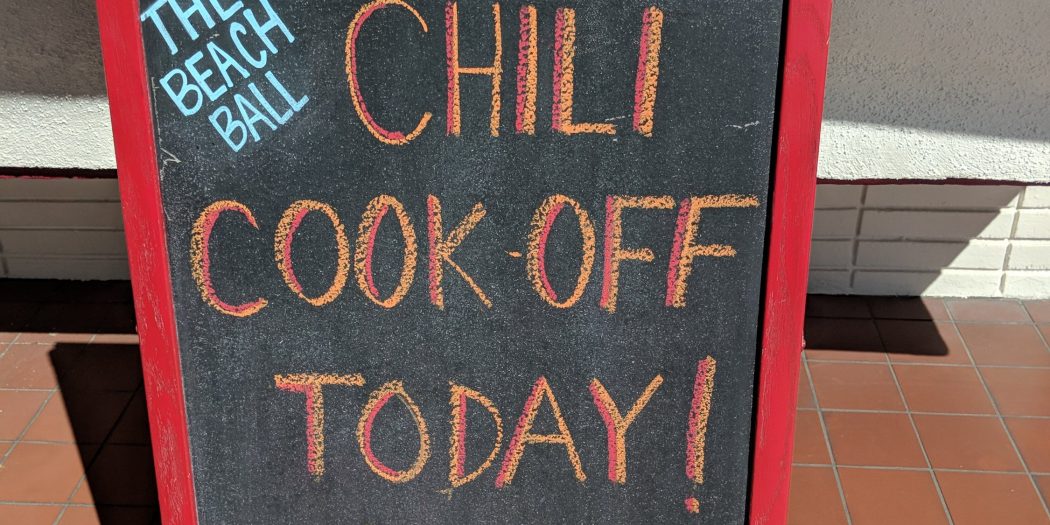 THE
BEACH
BALL
CHILI
COOK-OFF
TODAY!